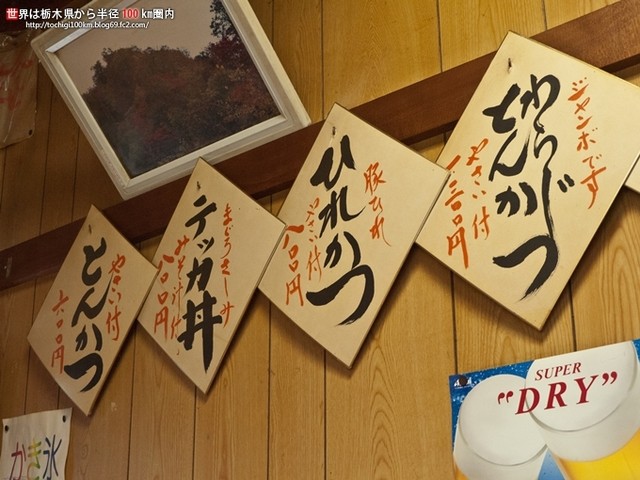 世界は栃木県から半径100km圏内
http://tochigi100km.blog69.fc2.com/
ジャンボです
わらじ
とんかつ
やさい付
一三〇〇円
豚ひれ
ひれかつ
やさい付
八〇〇円
まぐろさしみ
テッカ丼
みそ汁付
八〇〇円
やさい付
とんかつ
六〇〇円
かき氷
SUPER
"DRY"